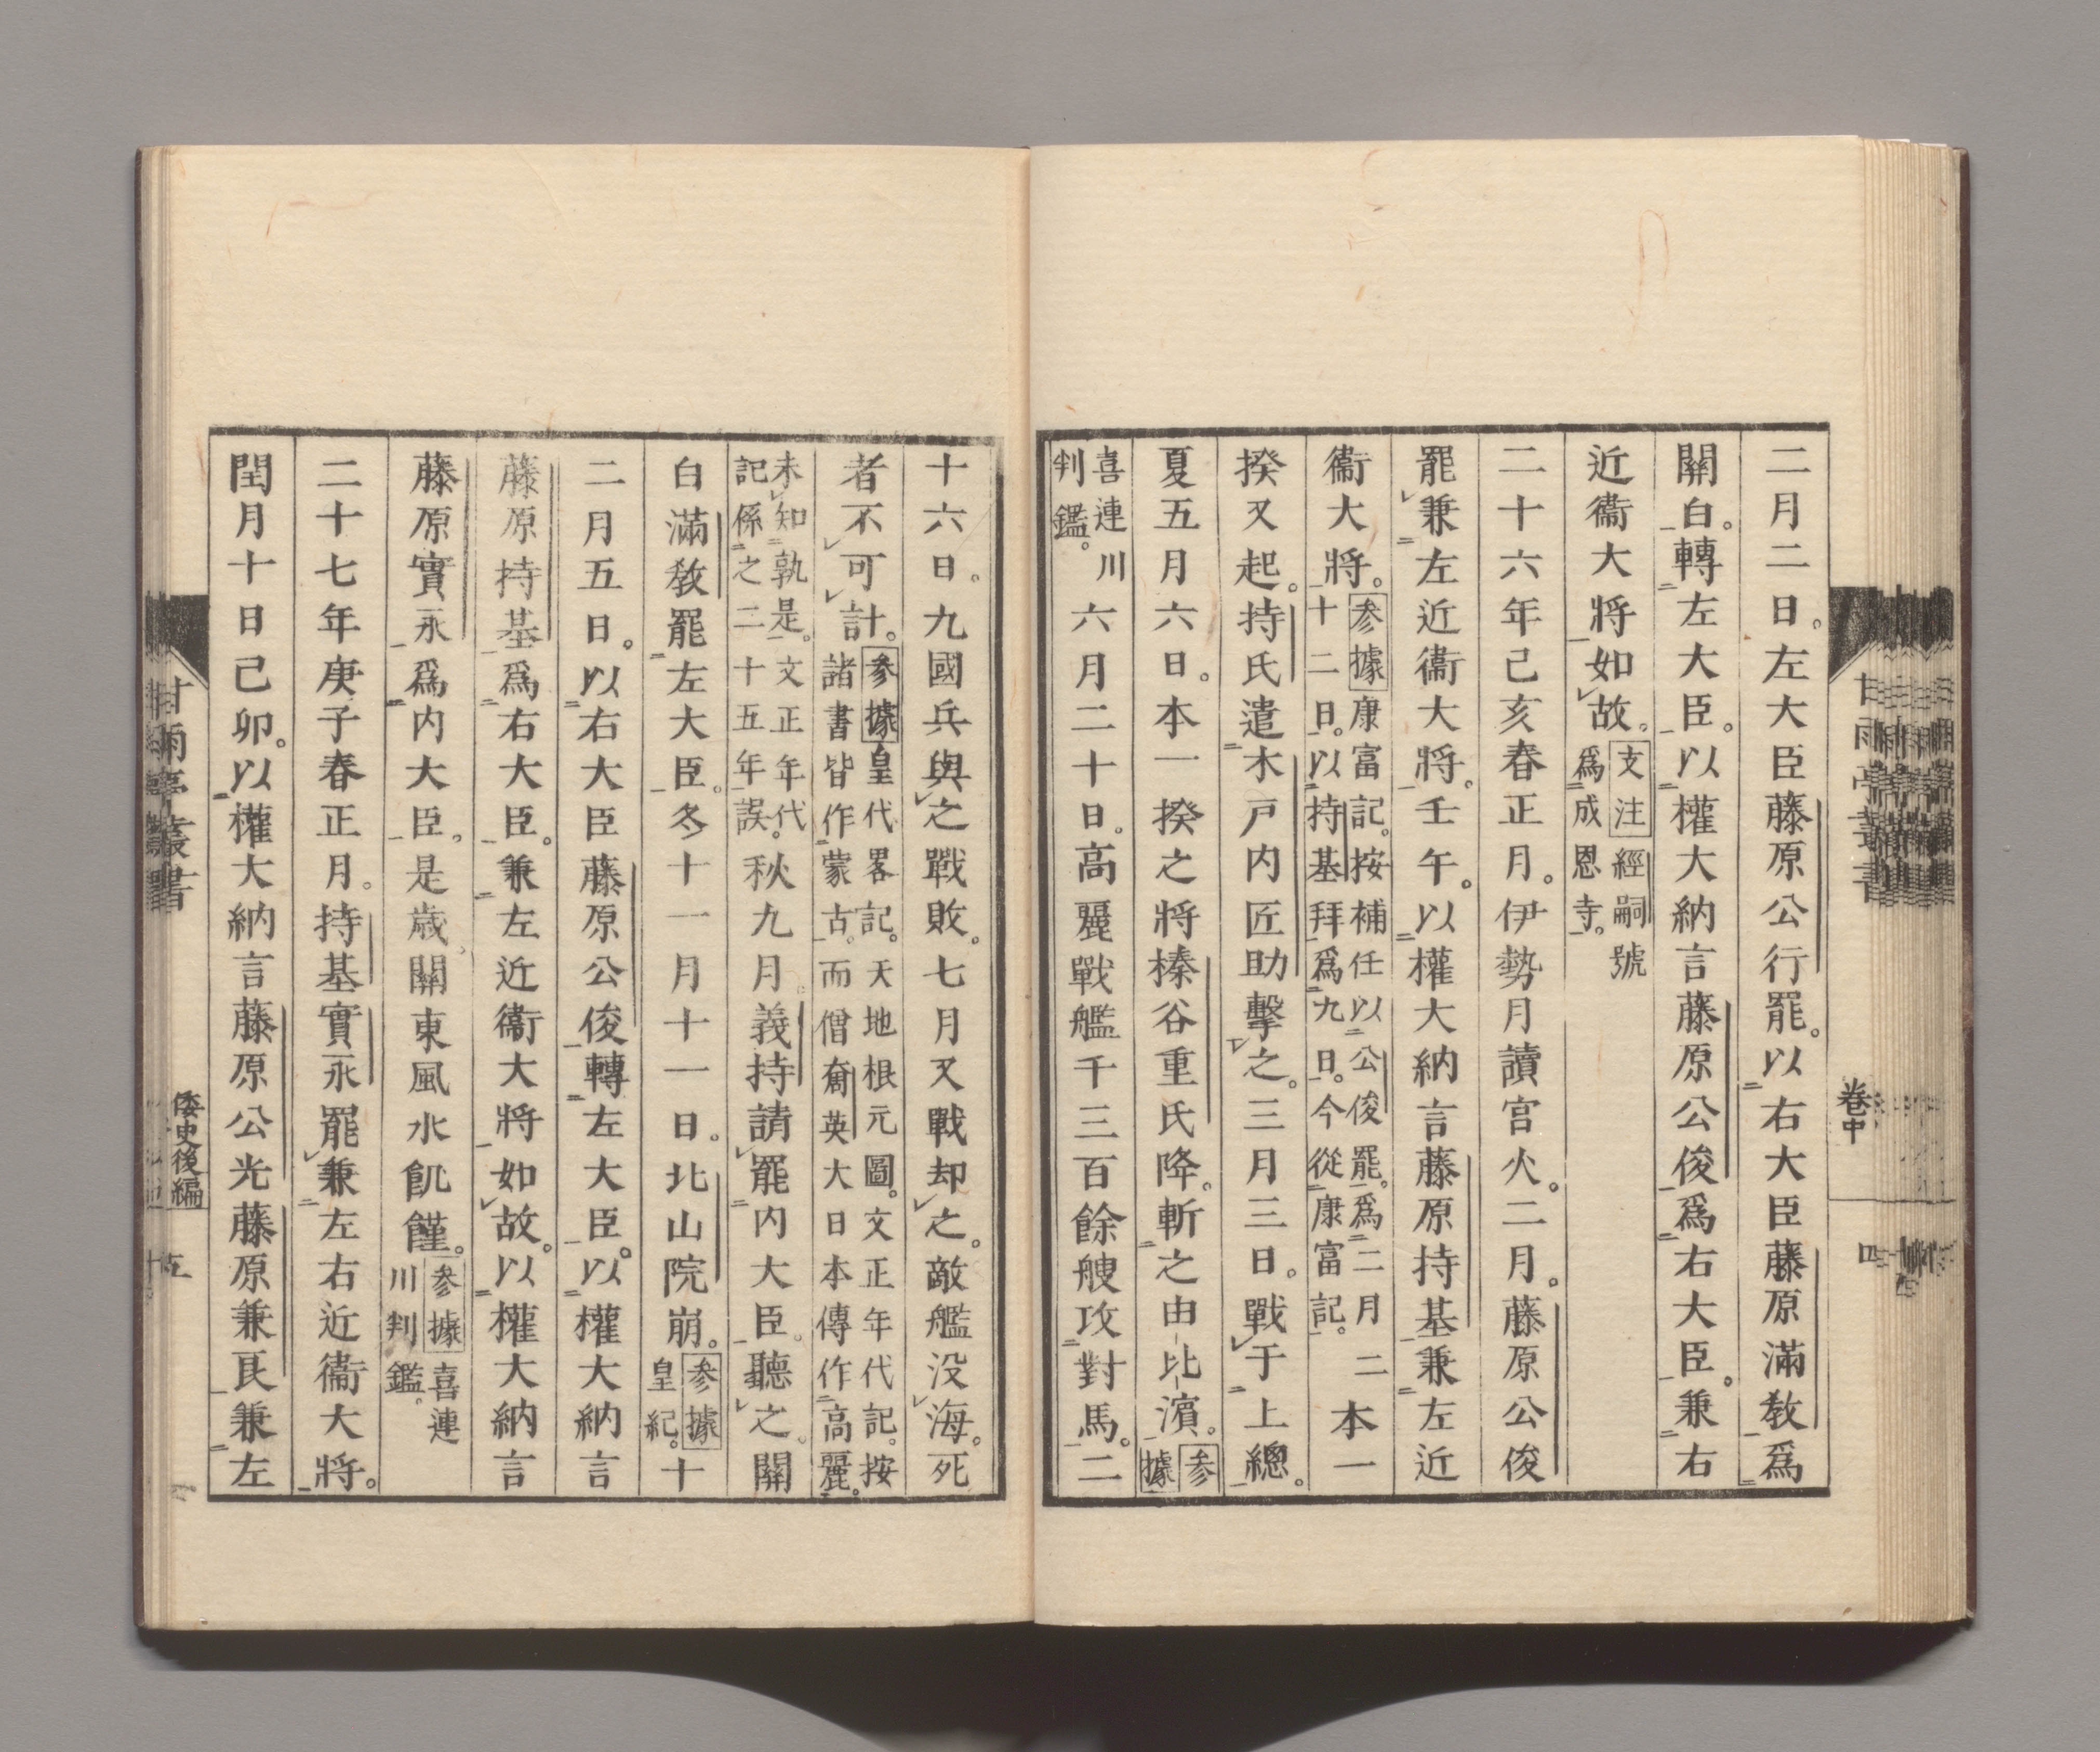 二月二日。左大臣藤原公行罷。以右大臣藤原滿教爲
關白。轉左大臣。以權大納言藤原公俊爲右大臣。兼右
近衞大將如故。支注經嗣號爲成恩寺。
二十六年己亥春正月。伊勢月讀宮火。二月。藤原公俊
罷兼左近衞大將。壬午。以權大納言藤原持基兼左近
衞大將。參據康富記。按補任以公俊罷。爲二月十二日。以持基拜爲九日。今從康富記。二本一
揆又起。持氏遣木戸内匠助擊之。三月三日。戰于上總。
夏五月六日。本一揆之將榛谷重氏降。斬之由比濱。參據
喜連川判鑑。六月二十日。高麗戰艦千三百餘艘攻對馬。二
卷中
四
十六日。九國兵與之戰敗。七月又戰却之。敵艦没海。死
者不可計。參據皇代畧記。天地根元圖。文正年代記。按諸書皆作蒙古。而僧奝英大日本傳作高麗。
未知孰是。文正年代記係之二十五年誤。秋九月。義持請罷内大臣。聽之。關
白滿教罷左大臣。冬十一月十一日。北山院崩。參據皇紀。十
二月五日。以右大臣藤原公俊轉左大臣。以權大納言
藤原持基爲右大臣。兼左近衞大將如故。以權大納言
藤原實永爲内大臣。是歳、關東風水飢饉。參據喜連川判鑑。
二十七年庚子春正月。持基實永罷兼左右近衞大將。
閏月十日己卯。以權大納言藤原公光藤原兼良兼左
甘雨亭叢書
倭史後編
五